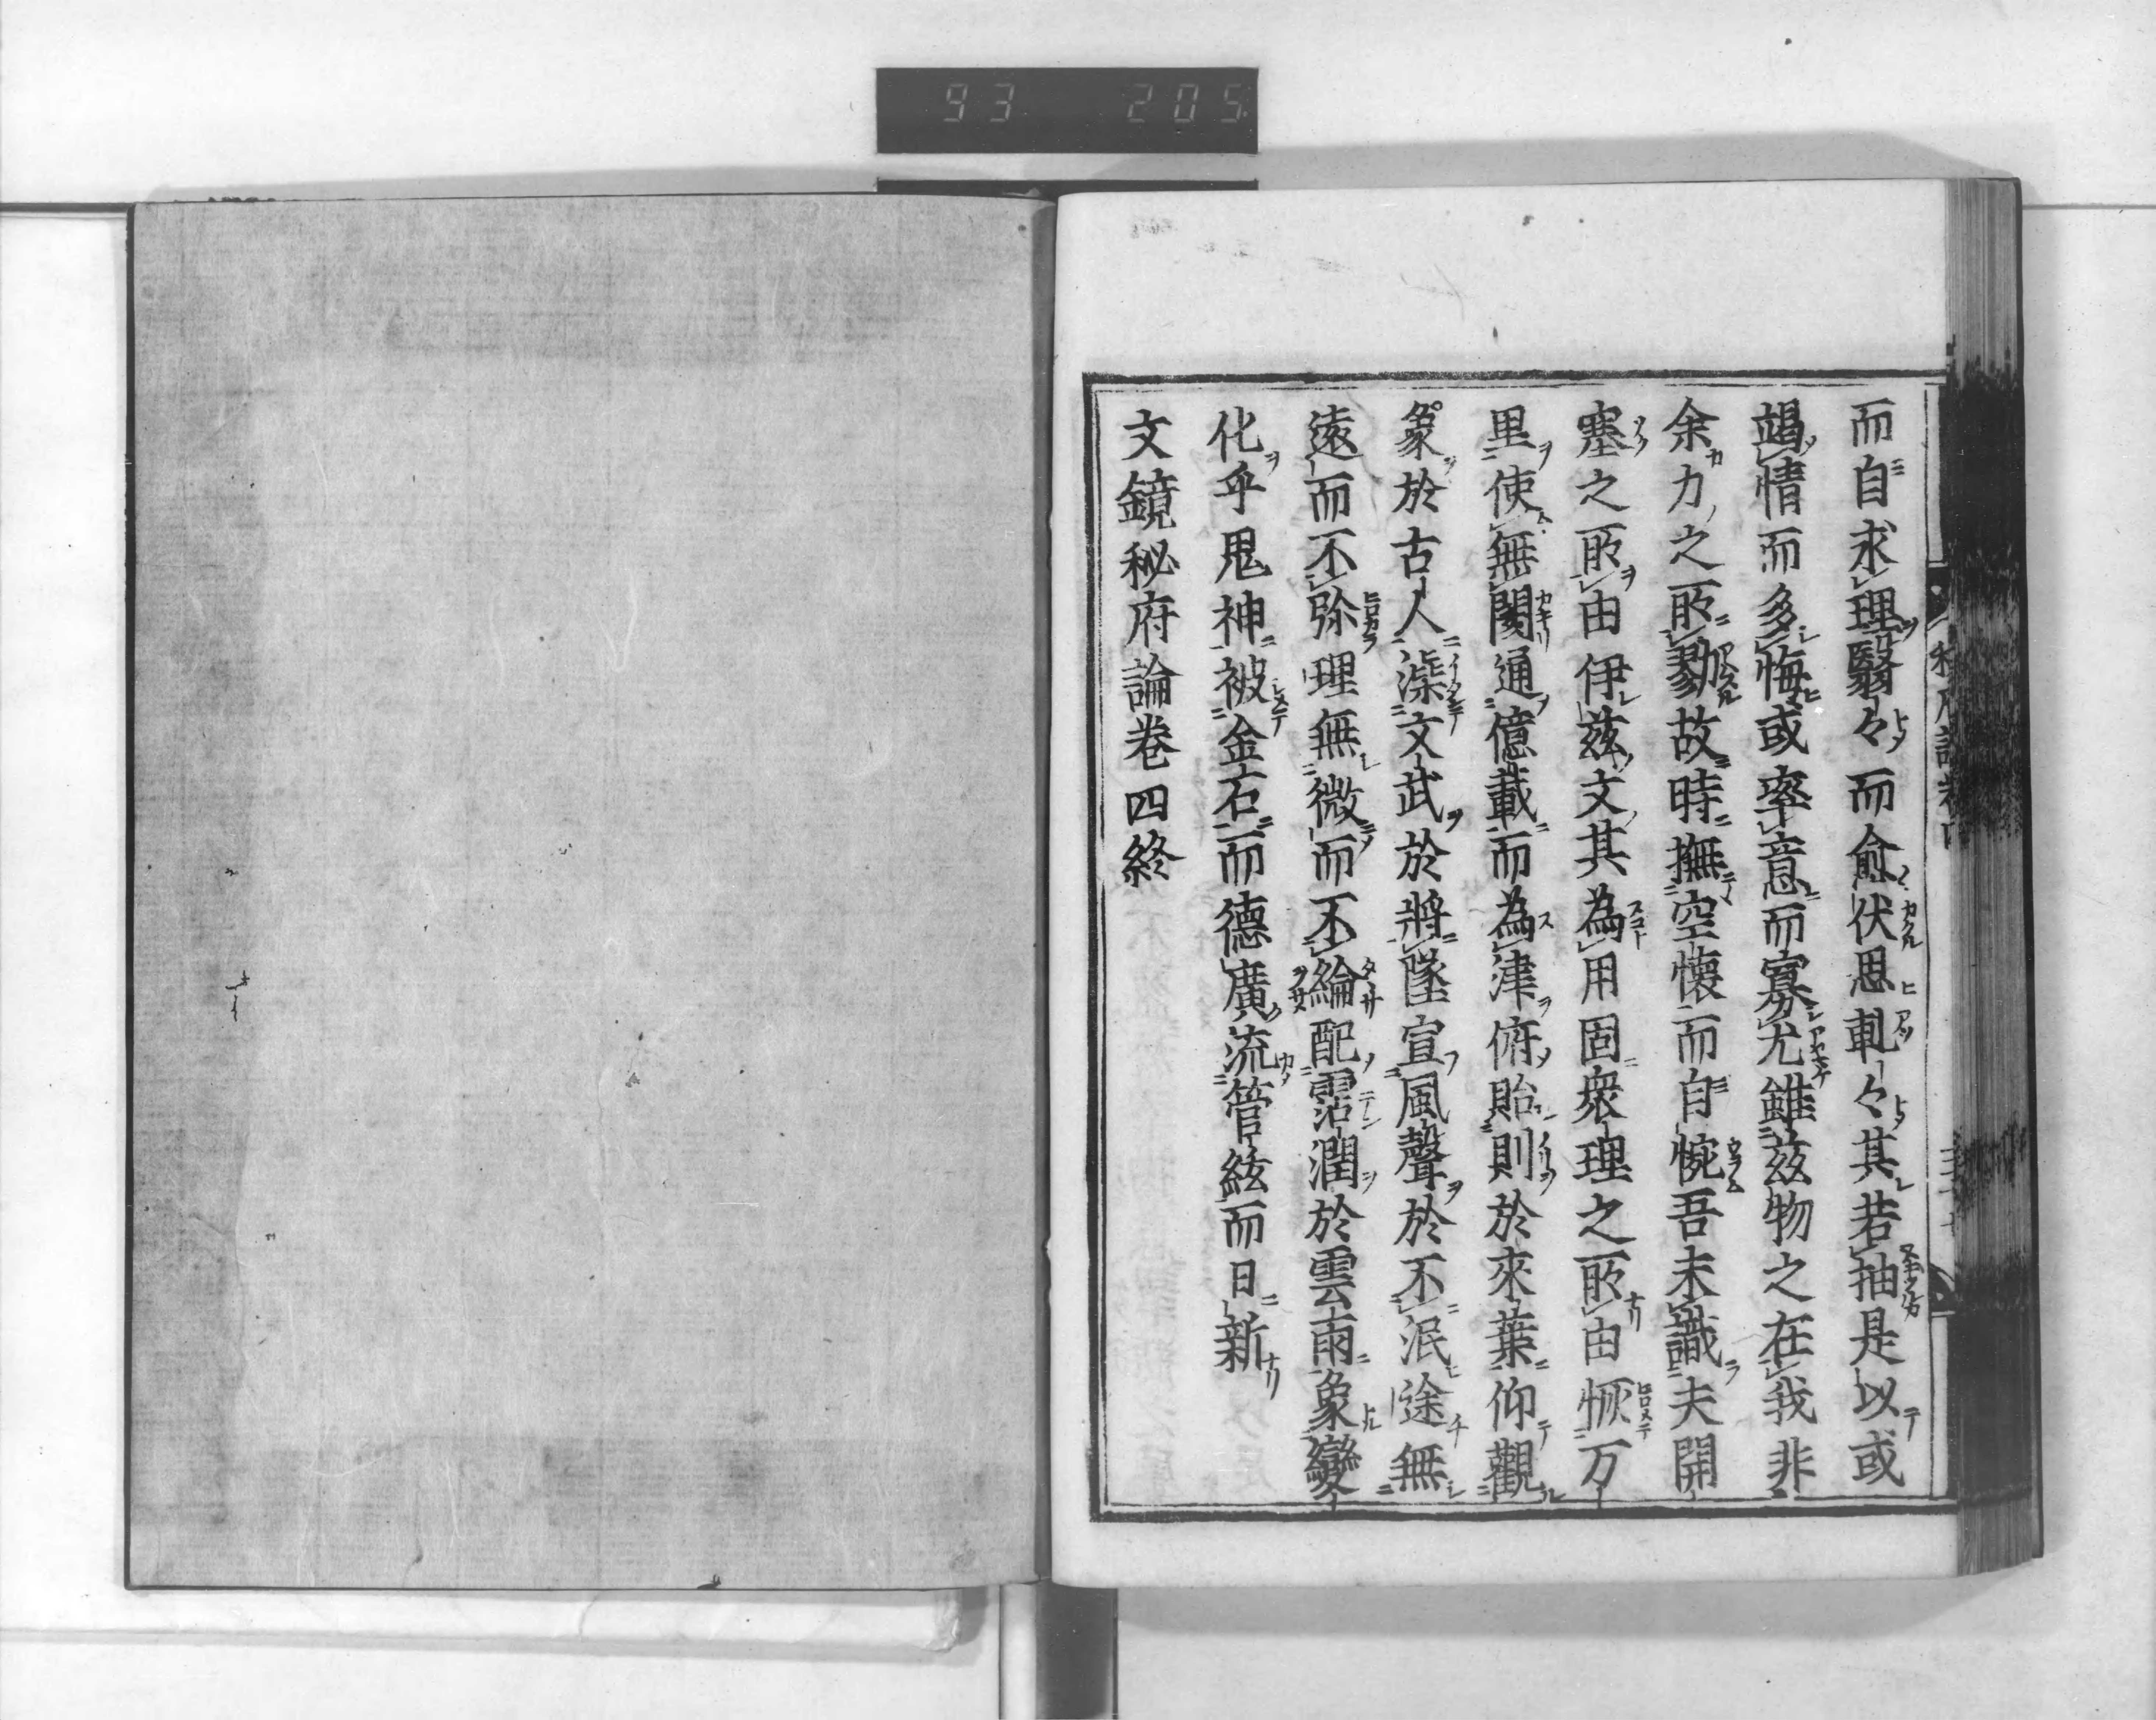 而自求理翳々而愈伏思軋々其若抽是以或
竭情而多悔或率意而寡尤雖茲物之在我非
余力之所勠故時撫空懷而自惋吾未識夫開
塞之所由伊茲文其為用固衆理之所由恢万
里使無閡通億載而為津俯貽則於來葉仰觀
象於古人濟文武於將墜宣風聲於不泯途無
遠而不弥理無微而不綸配霑潤於雲雨象變
化乎鬼神被金石而德廣流管絃而日新
文鏡秘府論卷四終
93 205